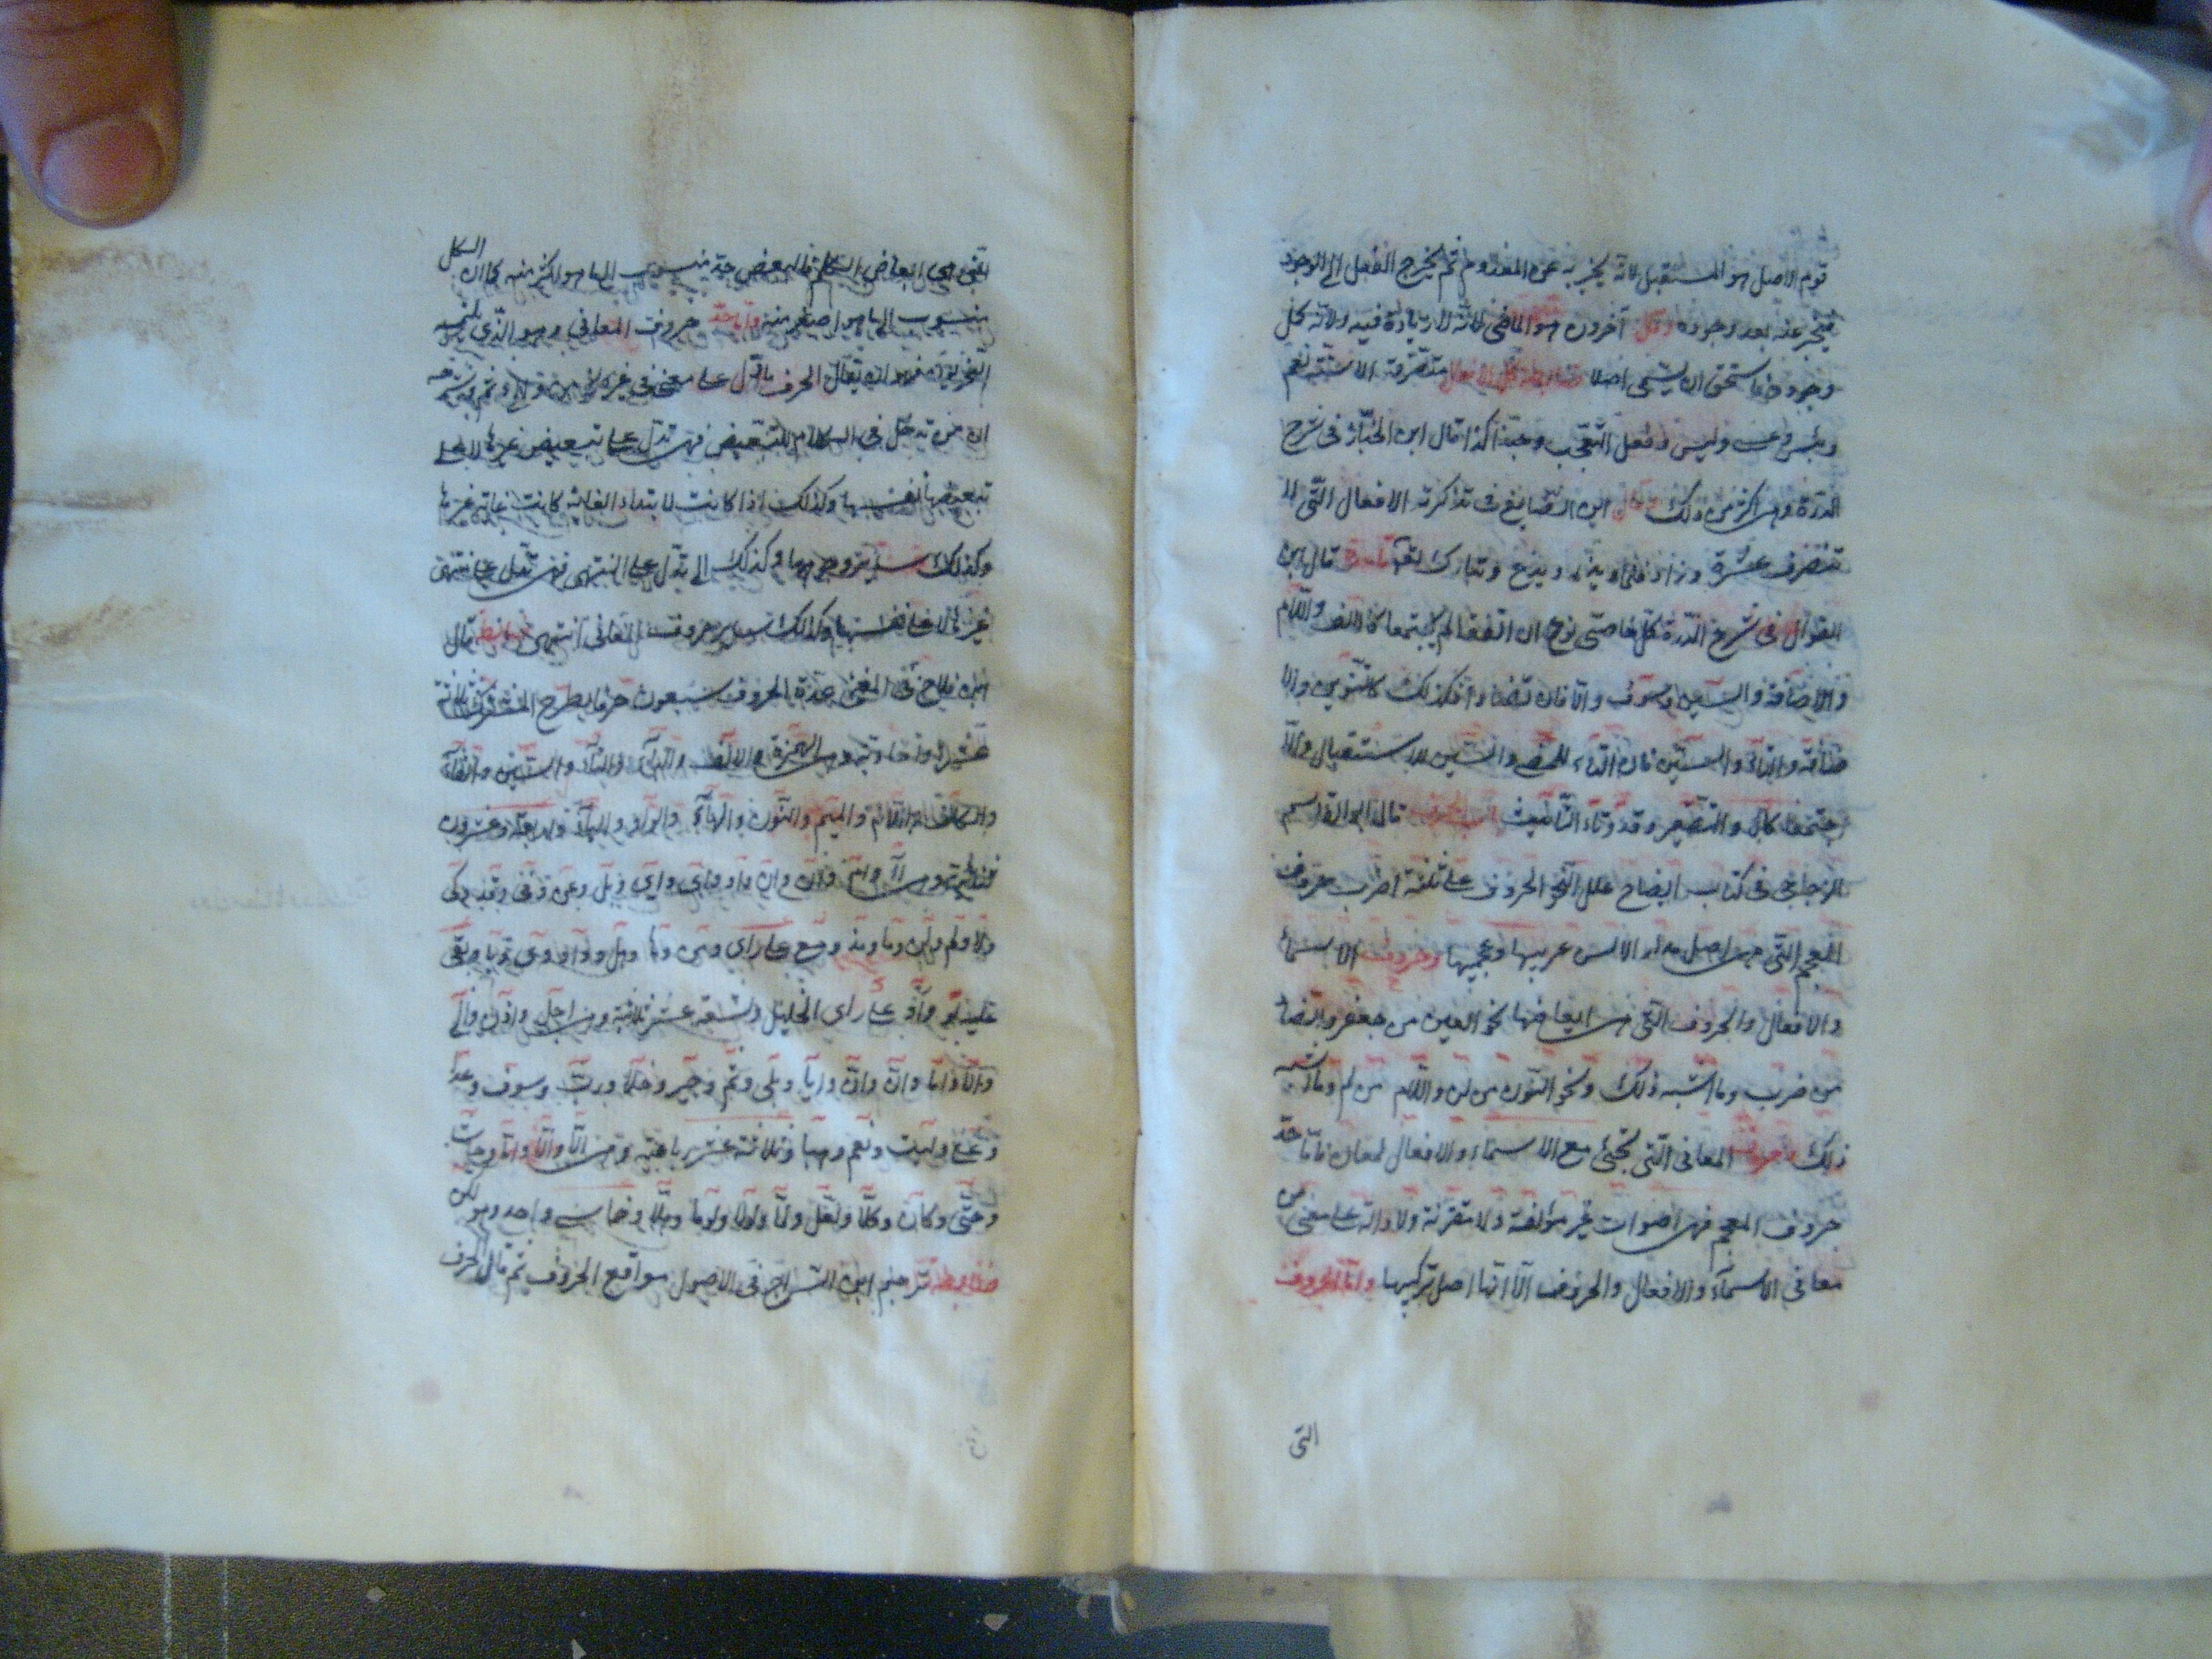 قوم الاصل هو المستقبل لانّه يخبر به عن المعدوم ثم يخرج الفعل الى الوجود
فيخبر عنه بعد وجوده وقال آخرون هو الماضى لانّه لا زيادة فيه ولانّه كمل
وجوده فاستحق ان يسمى اصلا ضابطة كل الافعال متصرّفة الا ستّة نعم
وبئس وعسى وليس وفعل التعجّب وحبّذا كذا قال ابن الخبّاز فى شرح
الدرّة وهى اكثر من ذلك وقال ابن الصّايغ فى تذكرته الافعال التّى لا
تتصرف عشرة وزاد قلّما ويذر ويدع وتبارك تعالى قاعدة قال ابن
القوّاس فى شرح الدّرة كلّ خاصتى نوع ان اتفقا لم يجتمعا كالالف واللّام
والاضافة والسّين وسوف والّا فان تضادّا فكذلك كالتنوين والا
ضافة والتّاء والسّين فان التّاء للمضى والسّين للاستقبال والّا
اجتمعا كأل والتّصغير وقد وتاء التّأنيث قال ابو القاسم
الزجاجى فى كتاب ايضاح علل النّحو الحروف على ثلثة اضرب حروف
المعجم التّى هى اصل مدار الالسن عربيها وعجميها وحروف الاسماء
والافعال والحروف التّى هى ابعاضها نحو العين من جعفر والضاد
من ضرب وما اشبه ذلك ونحو النّون من لن واللّام من لم وما اشبه
ذلك وحروف المعانى التّى تجئ مع الاسماء والافعال لمعان فامّا حدّ
حروف المعجم فهى اصوات غير مؤلفة ولا مقترنة ولا دالّة على معنى من
معانى الاسماء والافعال والحروف الّا انّها اصل تركيبها وامّا الحروف
التى
التّى هى ابعاض الكلم فالبعض حدّ منسوب الى ما هو اكثر منه كما ان الكل
منسوب الى ما هو اصغر منه وامّا حدّ حروف المعانى وهو الّذى يلتمسه
النّحويّون فهو ان يقال الحرف ما دلّ على معنى فى غيره نحو من والى وثم وشرحه
ان من تدخل فى الكلام للتبعيض فهى تدل على تبعيض غيرها لا على
تبعيضها نفسها وكذلك اذا كانت لابتداء الغاية كانت غاية غيرها
وكذلك سائر وجوهها وكذلك الى تدّل على المنتهى فهى تدل على منتهى
غيرها لا على منتهاها نفسها وكذلك سائر حروف المعانى انتهى ضابط قال
ابن فلاح فى المغنى عدّة الحروف سبعون حرفا بطرح المشترك ثلاثة
عشر احاديّة وهى الهمزة والالف والباء والتاء والسّين والفاء
والكاف واللّام والميم والنّون والهاء والواو والياء واربعة وعشرون
ثنائيّة وهى آ وام وان وان واو واى واى وبل وعن وفى وقد وكى
ولا ولم ولن وما ومذ ومع على راى ومن وها وهل ووا ووى ويا وبقى
عليه لو وأل على راى الخليل وتسعة عشر ثلاثية وهى اجل واذن والى
والا واما وان وان وايا وبلى وثم وجير وخلا ورب وسوف وعدا
وعلى وليت ونعم وهيا وثلاثة عشر رباعيّة وهى الّا والّا وامّا وحاشا
وحتّى وكان وكلّا ولعل ولمّا ولولا ولوما وهلّا وخماسى واحد وهو لكن
ضابط ترجم ابن السّراج فى الاصول مواقع الحروف ثم قال الحرف